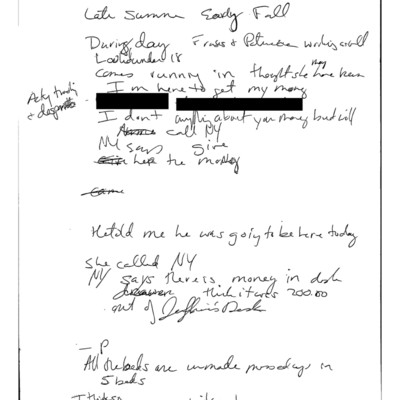 Late Summer Early Fall
During day Fraser & Peterson working
Looked under 18
comes running in thought she may have been
I'm here to get my money
Acky
&
I don't anything about your money but will
call NY
NY says give
her the money
Came
He told me he was going to be here today
She called NY
NY says there is money in desk
think it was 200.00
out of Jeffrie's Desk
— P
All the beds are unmade mosedays in
5 beds